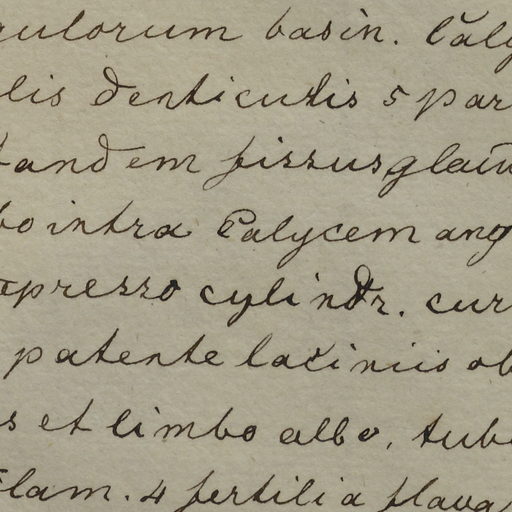 gulorum basin. Caly
lis denticulis 5 par
tandem fissus glau
bo intra Calycem ang
mpresso cylindr. cur
patente laciniis ob
s et limbo albo, tub
Flam. 4 fertilia flava